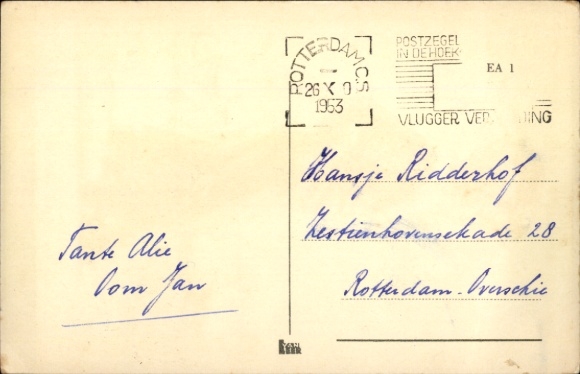 ROTTERDAM C.S
26 X 9
1953
POSTZEGEL
IN DE HOEK
VLUGGER VER DING
EA 1
Hansje Ridderhof
Zestienhovensekade 28
Rotterdam-Overschie
Tante Alie
Oom Jan